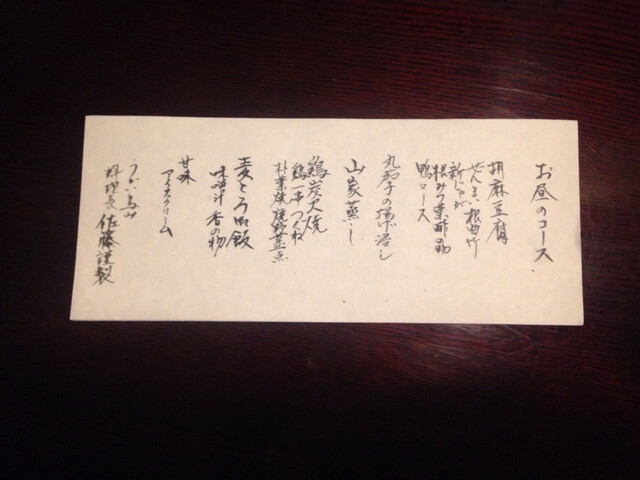 お昼のコース
胡麻豆腐
ぜんまい 根曲竹
新じゃが
根みつ葉酢の物
鴨ロース
丸茄子の揚げ浸し
山家蒸し
鶏炭火焼
鶏一串 つくね
朴葉 焼野菜二点
麦とろ御飯
味噌汁 香の物
甘味
アイスクリーム
うかい鳥山
料理長 佐藤謹製